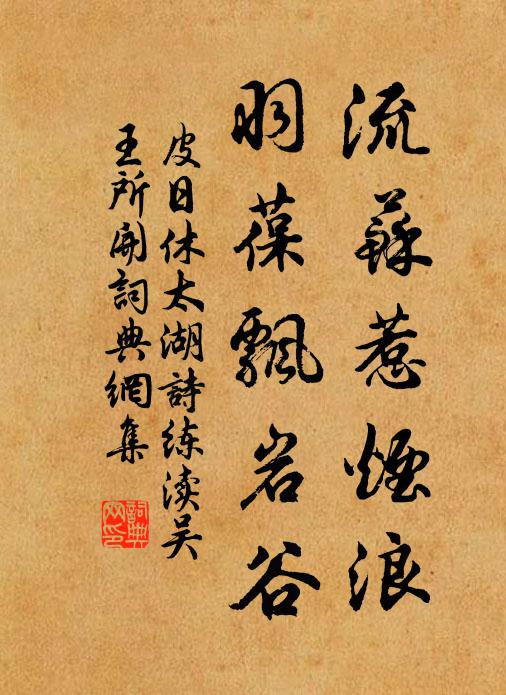 流蘇惹煙浪
羽葆飄岩谷
皮日休太湖詩练渎吴
王所開詞典網集
詞典
网印